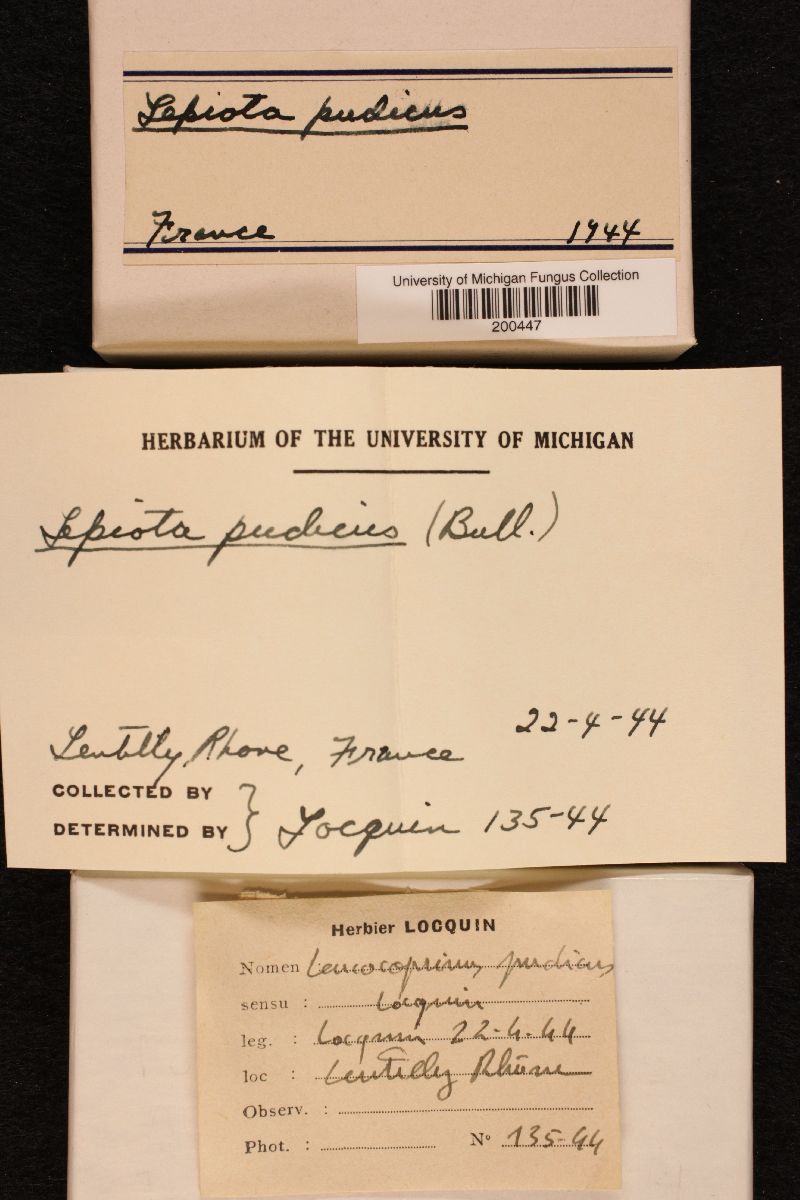 Lepiota pudicus
France 1944
University of Michigan Fungus Collection
200447
HERBARIUM OF THE UNIVERSITY OF MICHIGAN
Lepiota pudicus (Bull.)
22-4-44
Lentilly, Rhone, France
COLLECTED BY
DETERMINED BY } Locquin 135-44
Herbier LOCQUIN
Nomen Leucocoprinus pudicus
sensu : Locquin
leg. : Locquin 22-4-44
loc : Lentilly Rhône
Observ. :
Phot. : N° 135-44